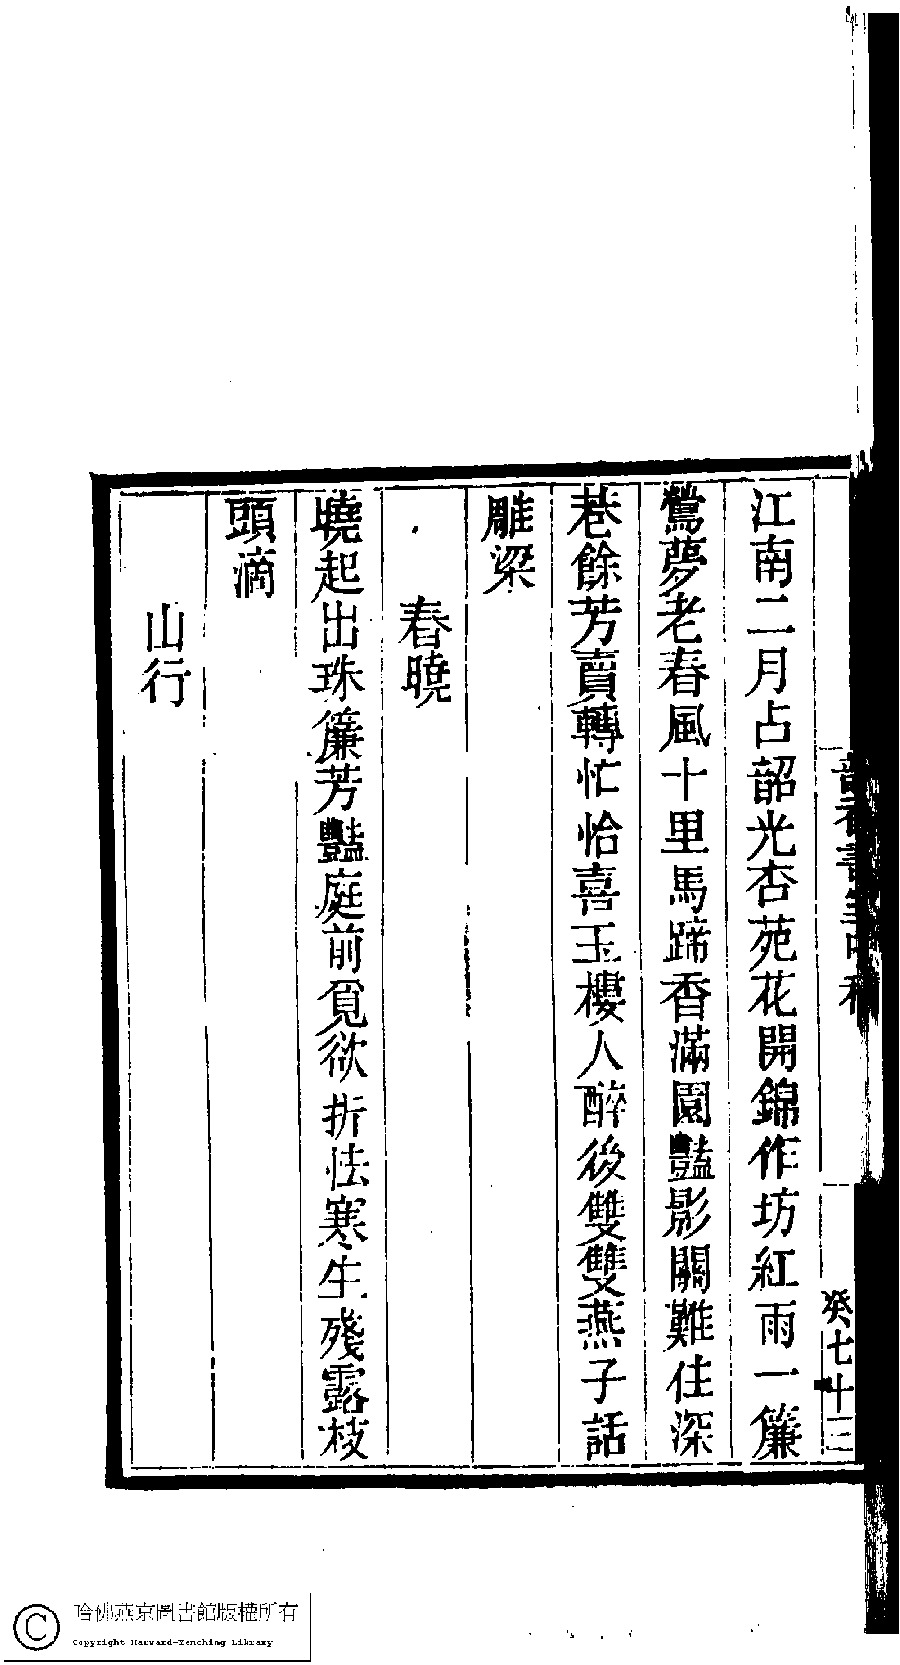 江南二月占韶光杏苑花開錦作坊紅雨一簾
鶯夢老春風十里馬蹄香滿園豔影關難住深
巷餘芳賣轉忙恰喜玉樓人醉後雙雙燕子話
雕梁
春曉
曉起出珠簾芳豔庭前覓欲折怯寒生殘露枝
頭滴
山行
癸七十三
哈佛燕京圖書館版權所有
Copyright Harvard-Yenching Library